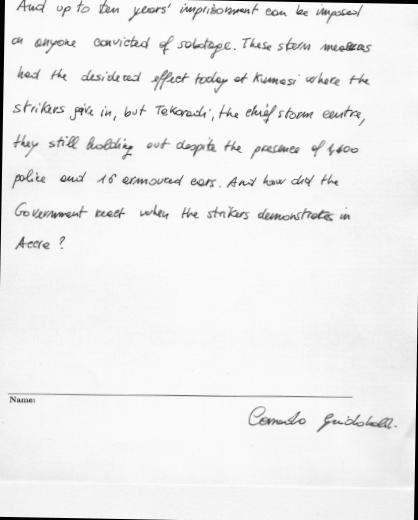 And up to ten years' imprisonment can be imposed
on anyone convicted of sabotage. These stern measures
had the desidered effect today at Kumasi where the
strikers give in, but Takoradi, the chief storm centre,
they still holding out despite the presence of 1,400
police and 16 armoured cars. And how did the
Government react when the strikers demonstrates in
Accra ?
Name: